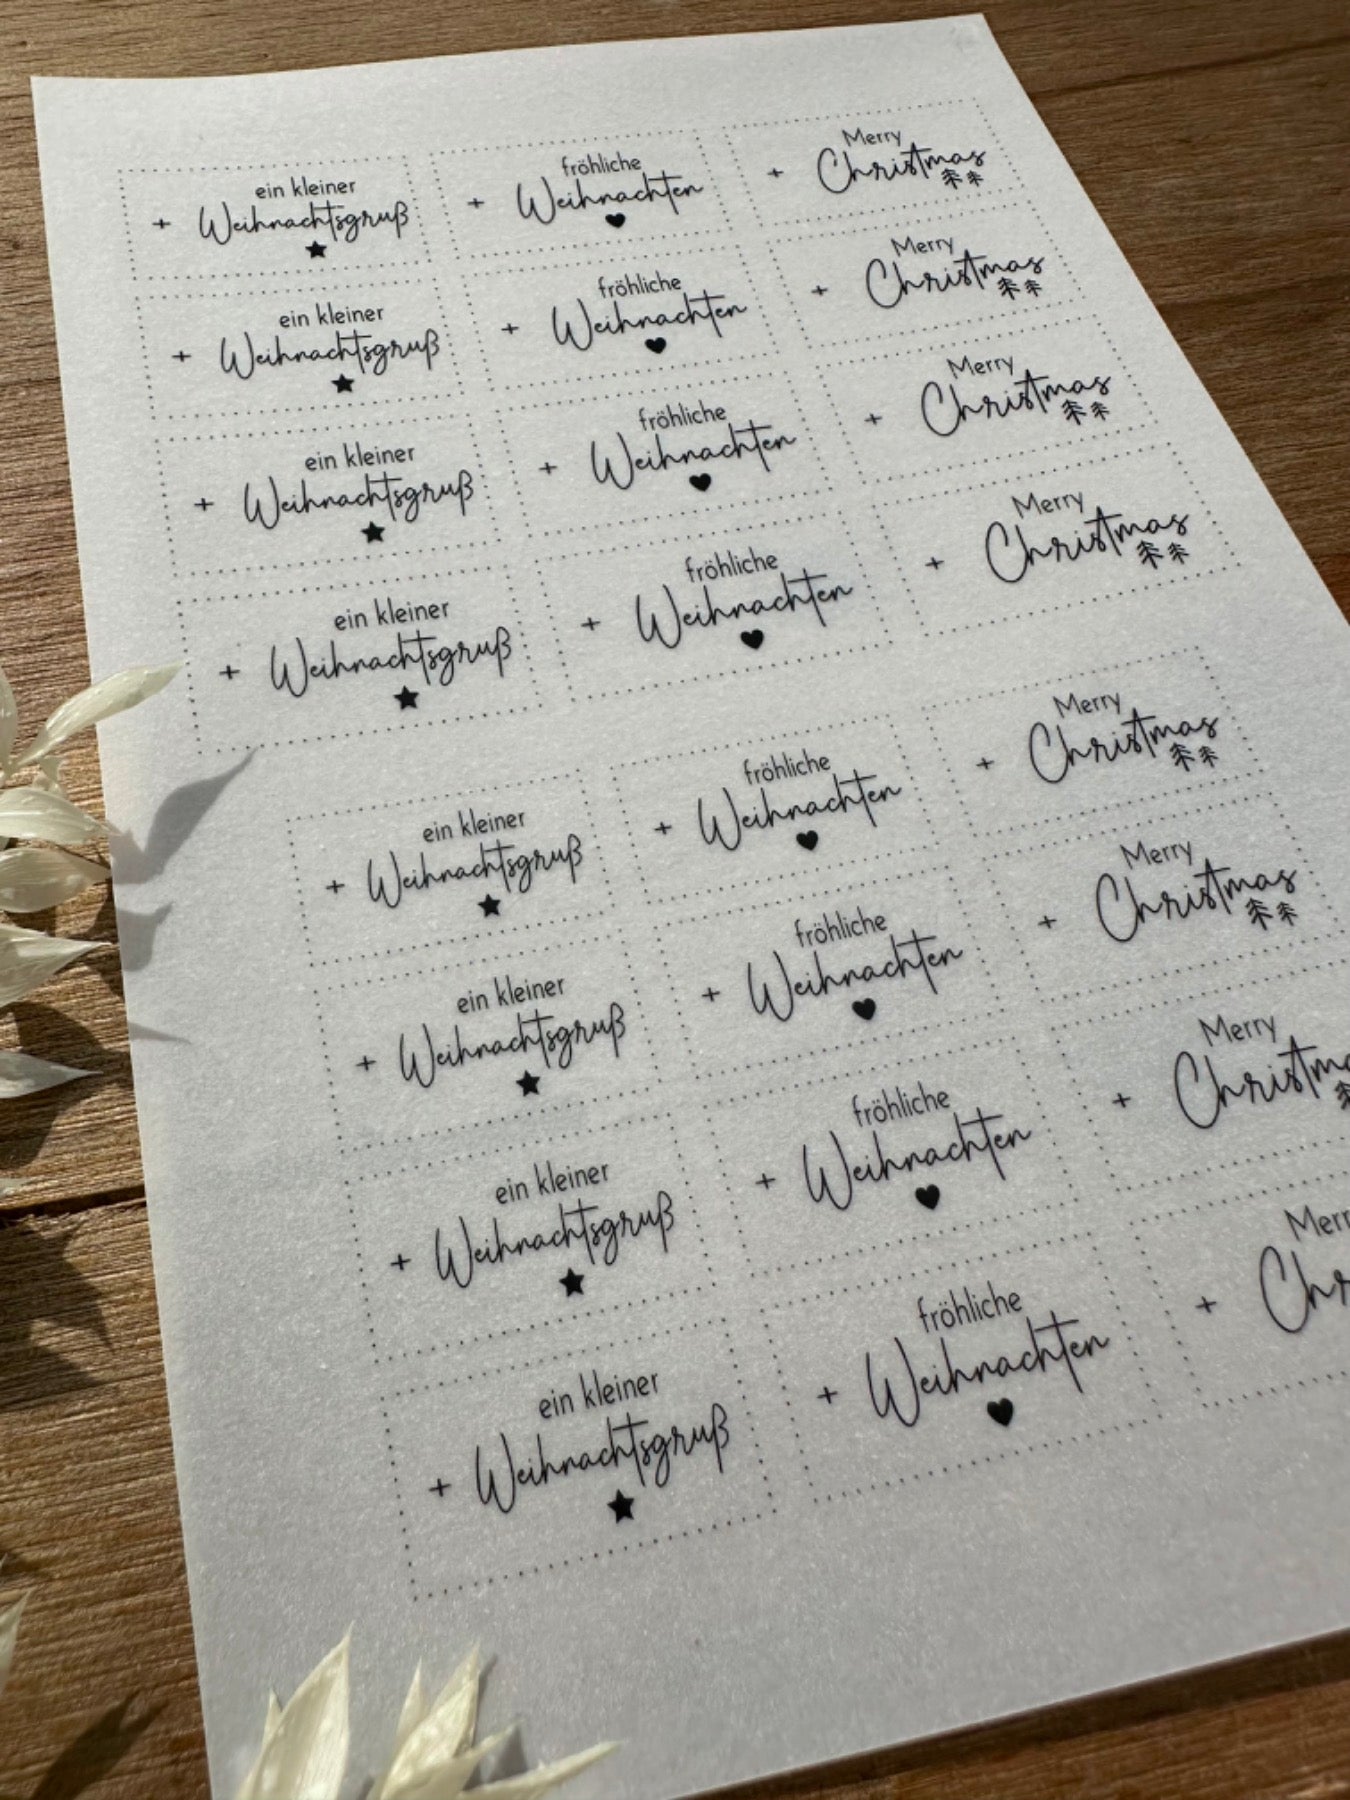 ein kleiner
+ Weihnachtsgruß
fröhliche
+ Weihnachten
Merry
+ Christmas
ein kleiner
+ Weihnachtsgruß
fröhliche
+ Weihnachten
Merry
+ Christmas
ein kleiner
+ Weihnachtsgruß
fröhliche
+ Weihnachten
Merry
+ Christmas
ein kleiner
+ Weihnachtsgruß
fröhliche
+ Weihnachten
Merry
+ Christmas
ein kleiner
+ Weihnachtsgruß
fröhliche
+ Weihnachten
Merry
+ Christmas
ein kleiner
+ Weihnachtsgruß
fröhliche
+ Weihnachten
Merry
+ Christmas
ein kleiner
+ Weihnachtsgruß
fröhliche
+ Weihnachten
Merry
+ Christm
ein kleiner
+ Weihnachtsgruß
fröhliche
+ Weihnachten
Merr
+ Chr